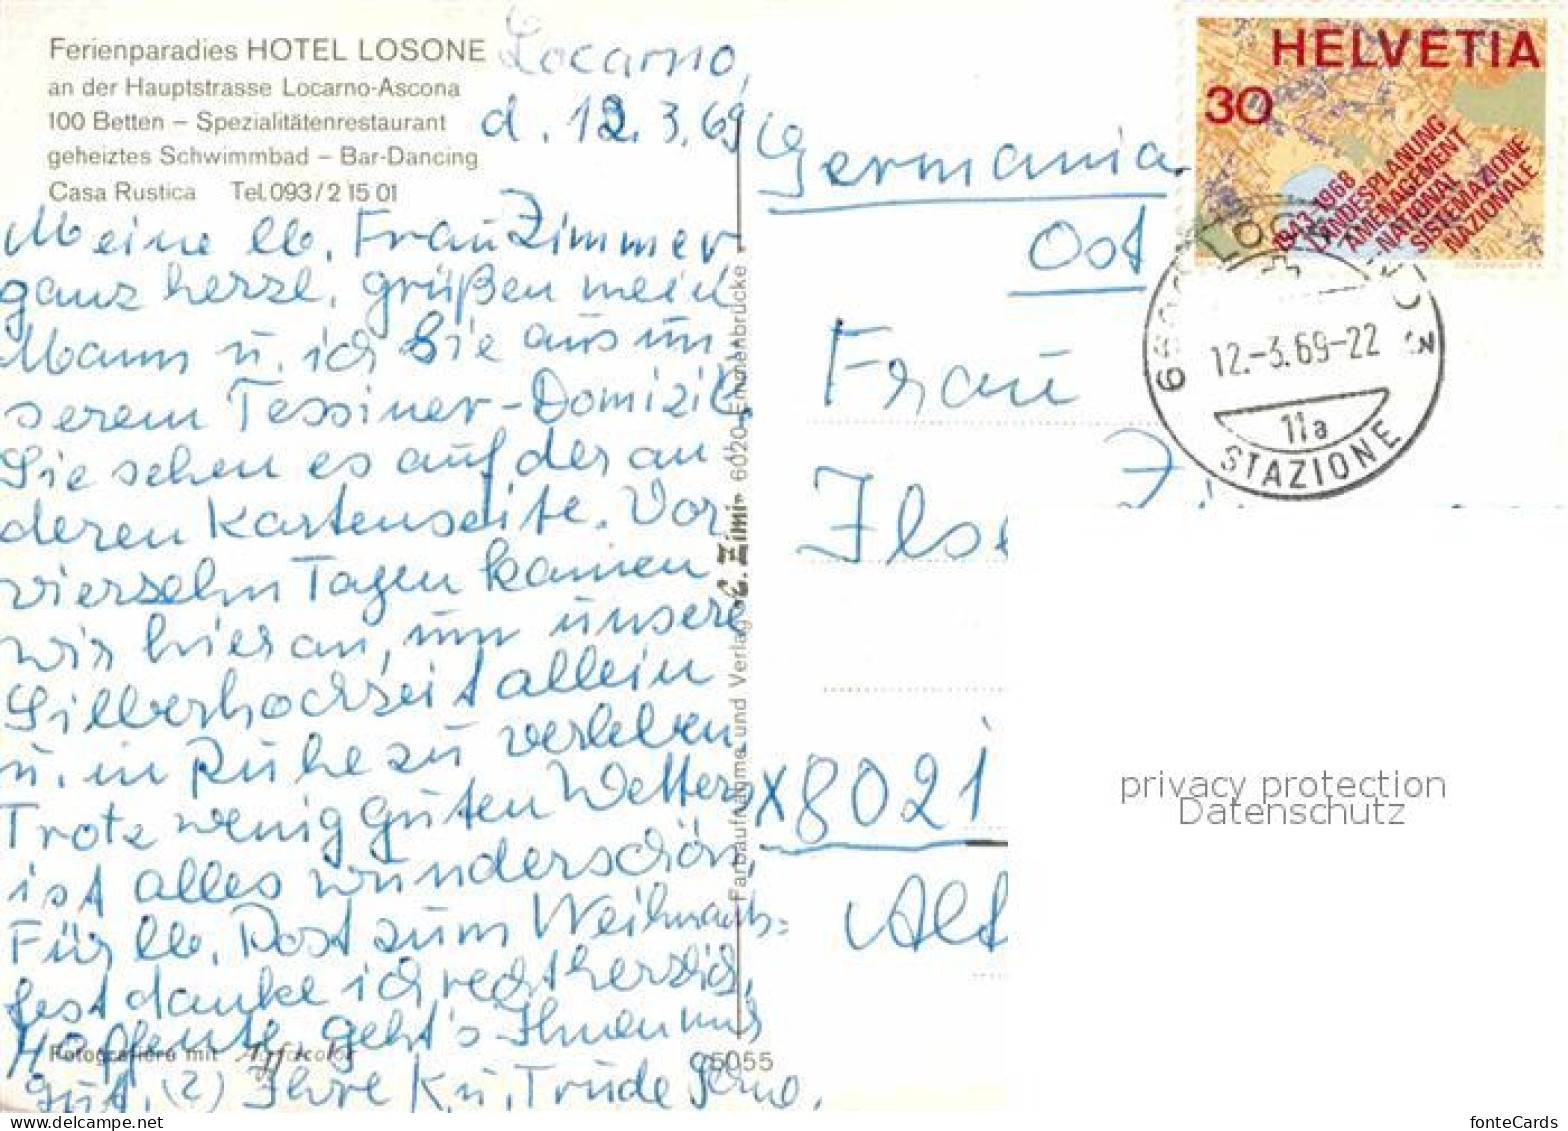 Ferienparadies HOTEL LOSONE
an der Hauptstrasse Locarno-Ascona
100 Betten – Spezialitätenrestaurant
geheiztes Schwimmbad – Bar-Dancing
Casa Rustica Tel. 093/2 15 01
Locarno,
d. 12.3.69
Meine lb. Frau Zimmer
ganz herzl. grüßen mein
Mann u. ich Sie aus un
serem Tessiner-Domizil.
Sie sehen es auf der an
deren Kartenseite. Vor
vierzehn Tagen kamen
wir hier an, um unsere
Silberhochzeit allein
u. in Ruhe zu verleben
Trotz wenig guten Wetters
ist alles wunderschön,
Für lb. Post zum Weihnachts=
fest danke ich recht herzlich,
Hoffentl. geht's Ihnen nur
gut. (2) Ihre K u. Trude
Fotografiere mit Agfacolor
Farbaufnahme und Verlag C. Zimmer 6020 Emmenbrücke
05055
HELVETIA
30
1943-1968
LANDESPLANUNG
AMENAGEMENT
NATIONAL
SISTEMAZIONE
NAZIONALE
12.-3.69-22
11a
STAZIONE
Germania
Ost
Frau
Ilse
X8021
privacy protection
Datenschutz
fonteCards